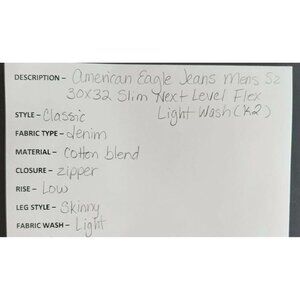 DESCRIPTION – American Eagle Jeans Mens Sz
30X32 Slim Next Level Flex
Light Wash (K2)
STYLE – Classic
FABRIC TYPE – denim
MATERIAL – Cotten blend
CLOSURE – zipper
RISE – Low
LEG STYLE – Skinny
FABRIC WASH – Light